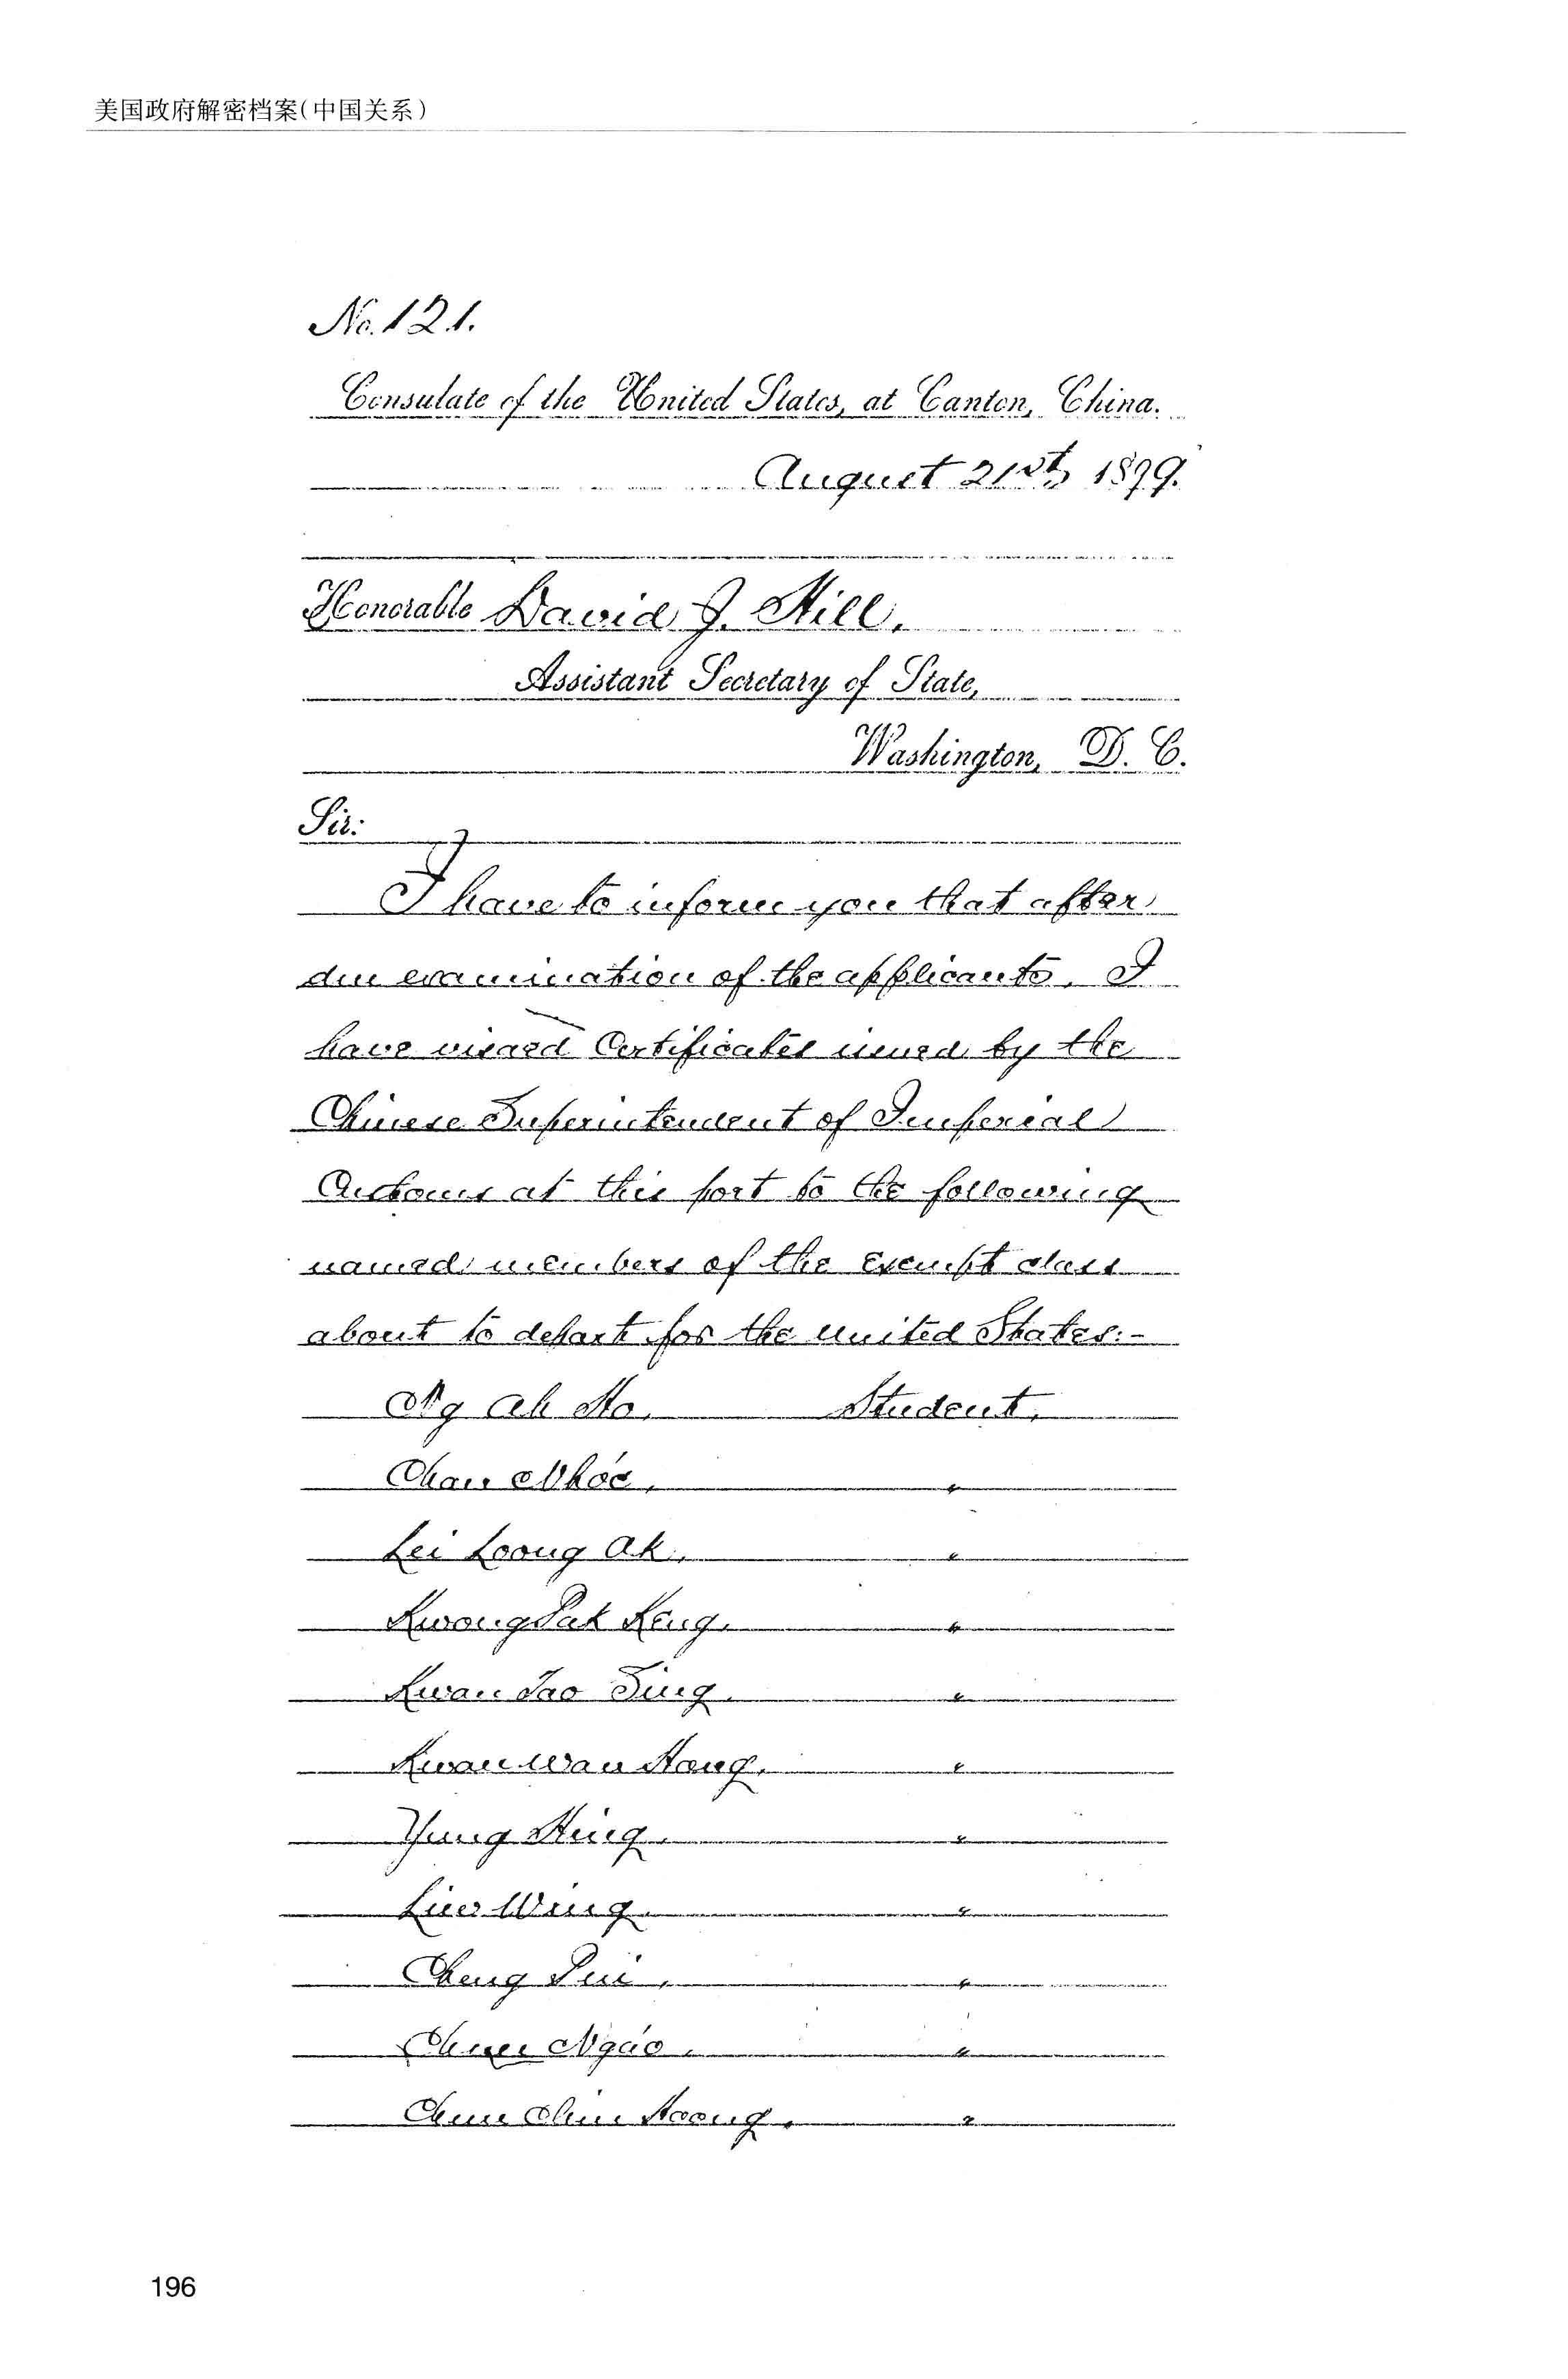 美国政府解密档案(中国关系)
No. 121.
Consulate of the United States, at Canton, China.
August 21st, 1899.
Honorable David J. Hill,
Assistant Secretary of State,
Washington, D. C.
Sir:
I have to inform you that after
due examination of the applicants, I
have visaed Certificates issued by the
Chinese Superintendent of Imperial
Customs at this port to the following
named members of the exempt class
about to depart for the United States:-
Ng Ah Ho, Student,
Chan Nhóc, "
Lei Loong Ak, "
Kwong Pak Keng, "
Kwan Tao Sing, "
Kwan Wan Hong, "
Yung Hing, "
Liew Wing, "
Cheng Pui, "
Chun Ngáo, "
Chun Chin Hoong, "
196